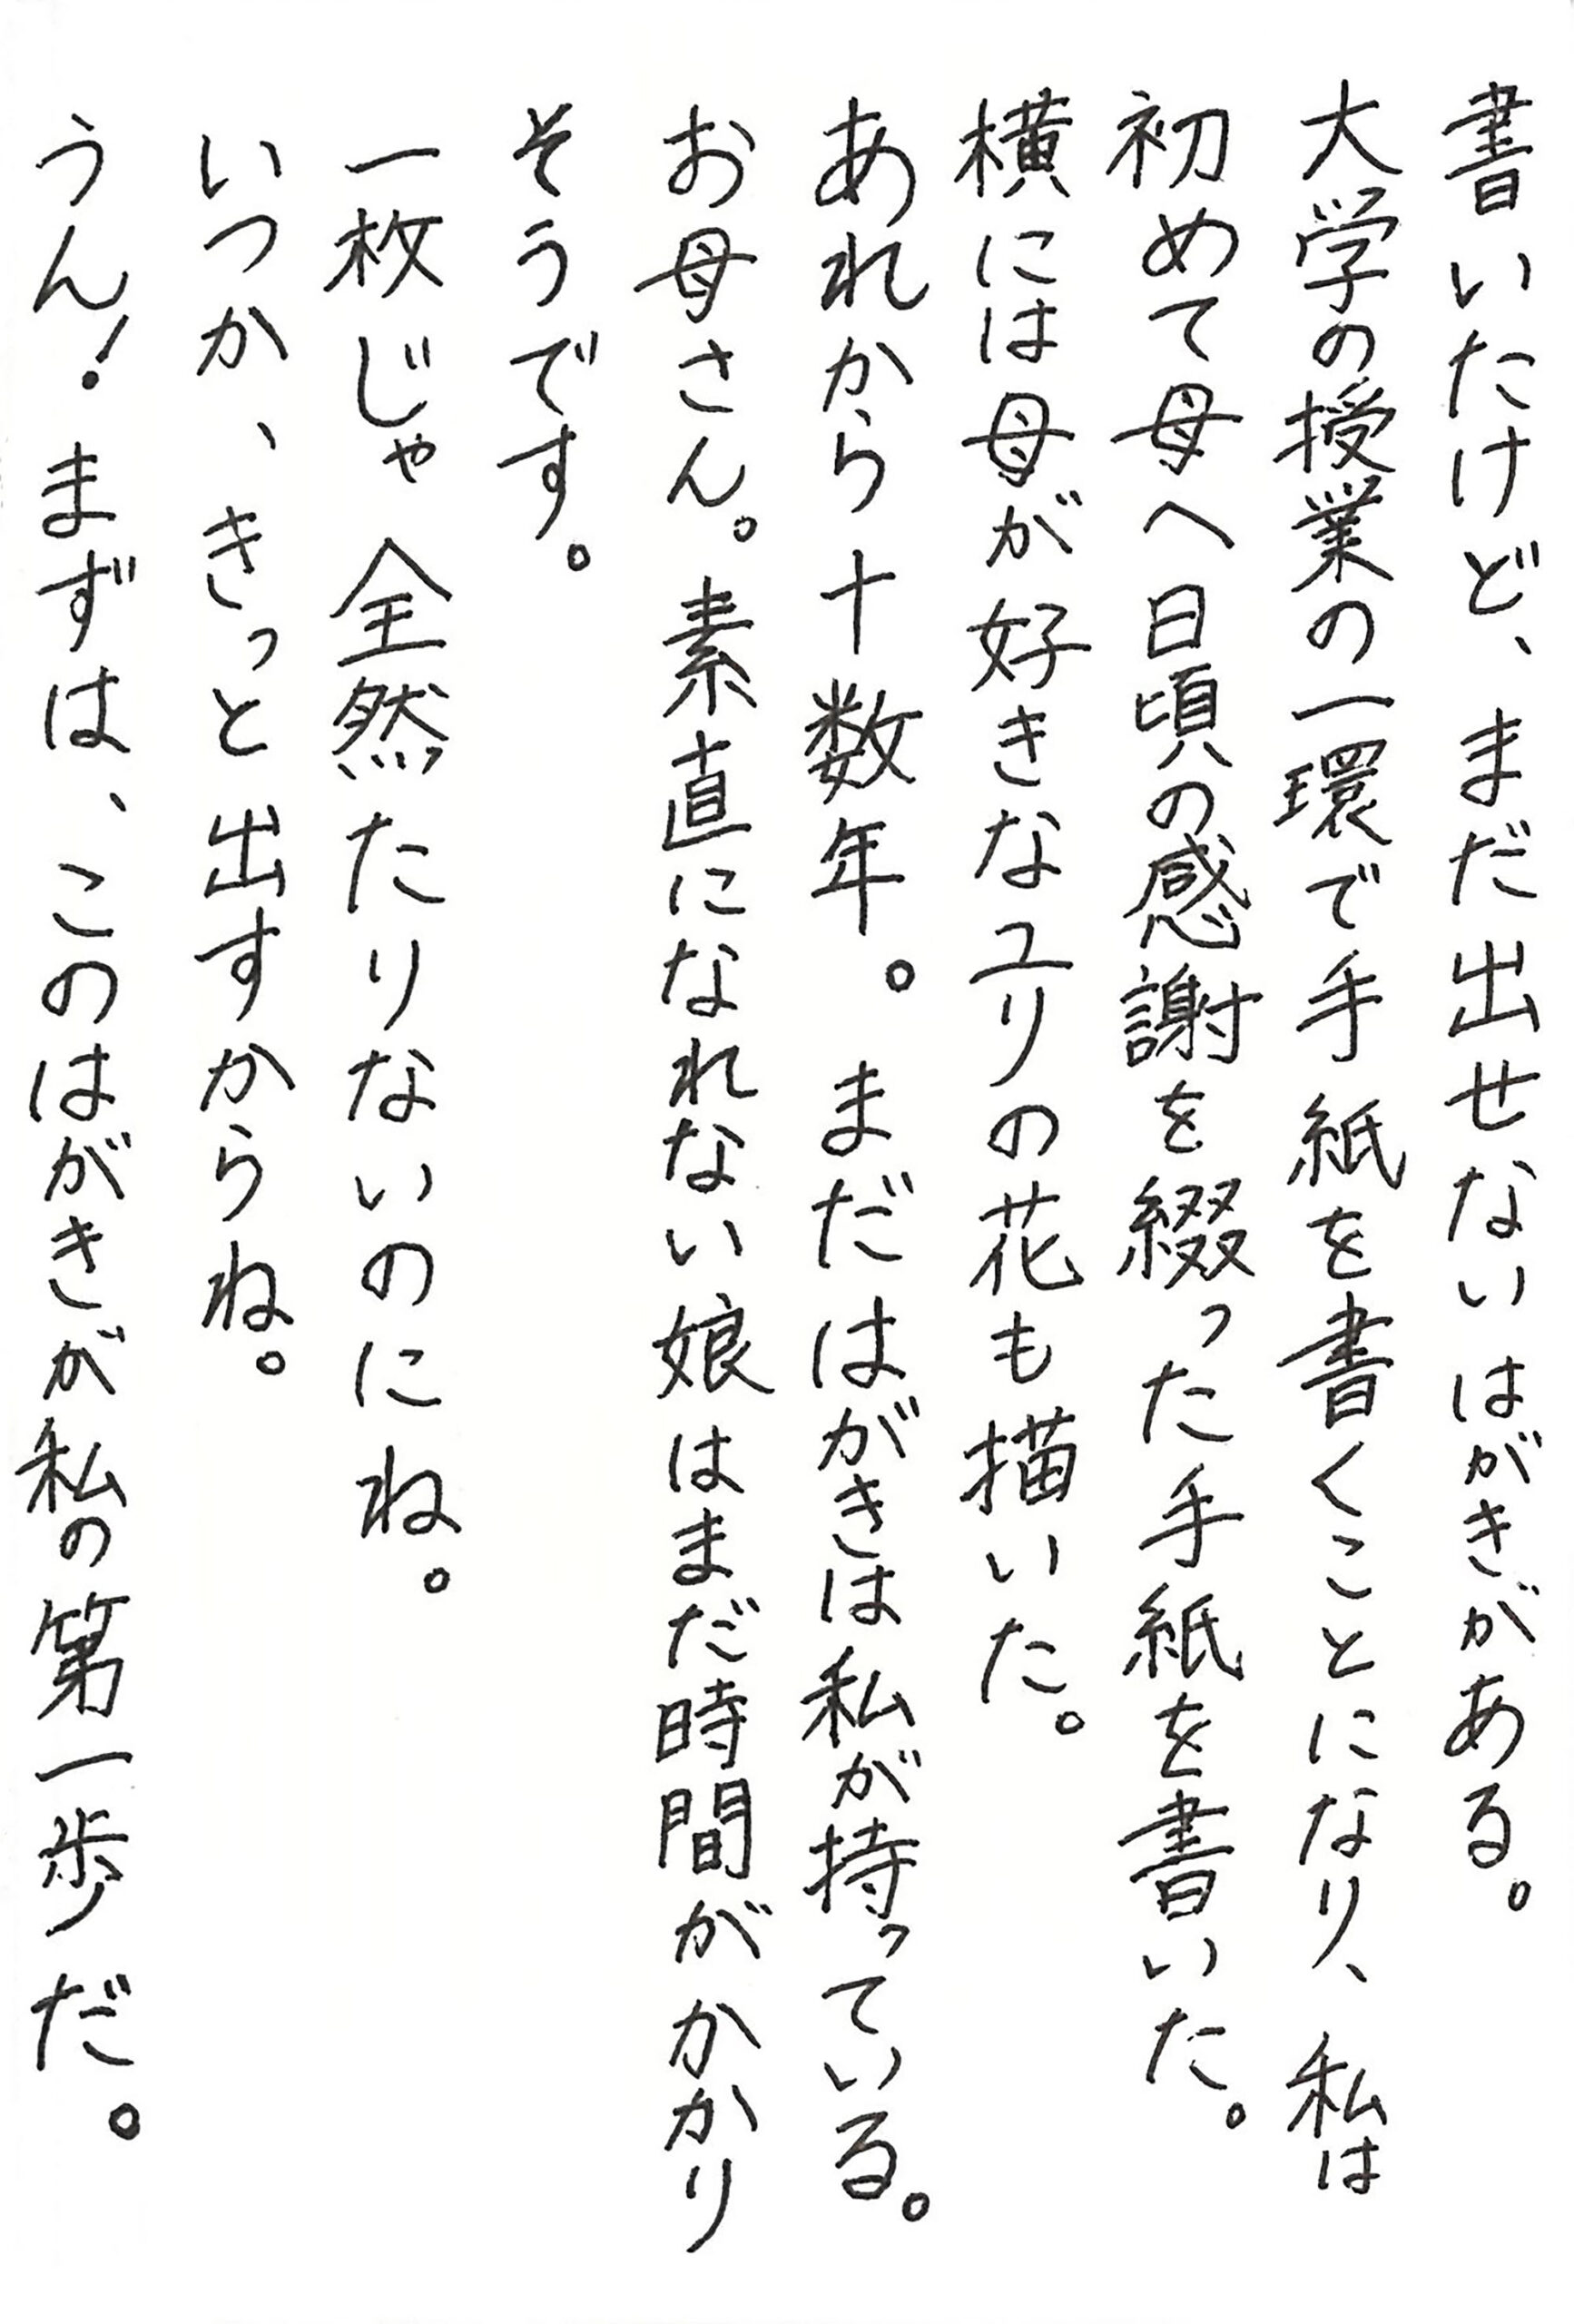 書いたけど、まだ出せないはがきがある。
大学の授業の一環で手紙を書くことになり、私は
初めて母へ日頃の感謝を綴った手紙を書いた。
横には母が好きなユリの花も描いた。
あれから十数年。まだはがきは私が持っている。
お母さん。素直になれない娘はまだ時間がかかり
そうです。
一枚じゃ全然たりないのにね。
いつか、きっと出すからね。
うん!まずは、このはがきが私の第一歩だ。